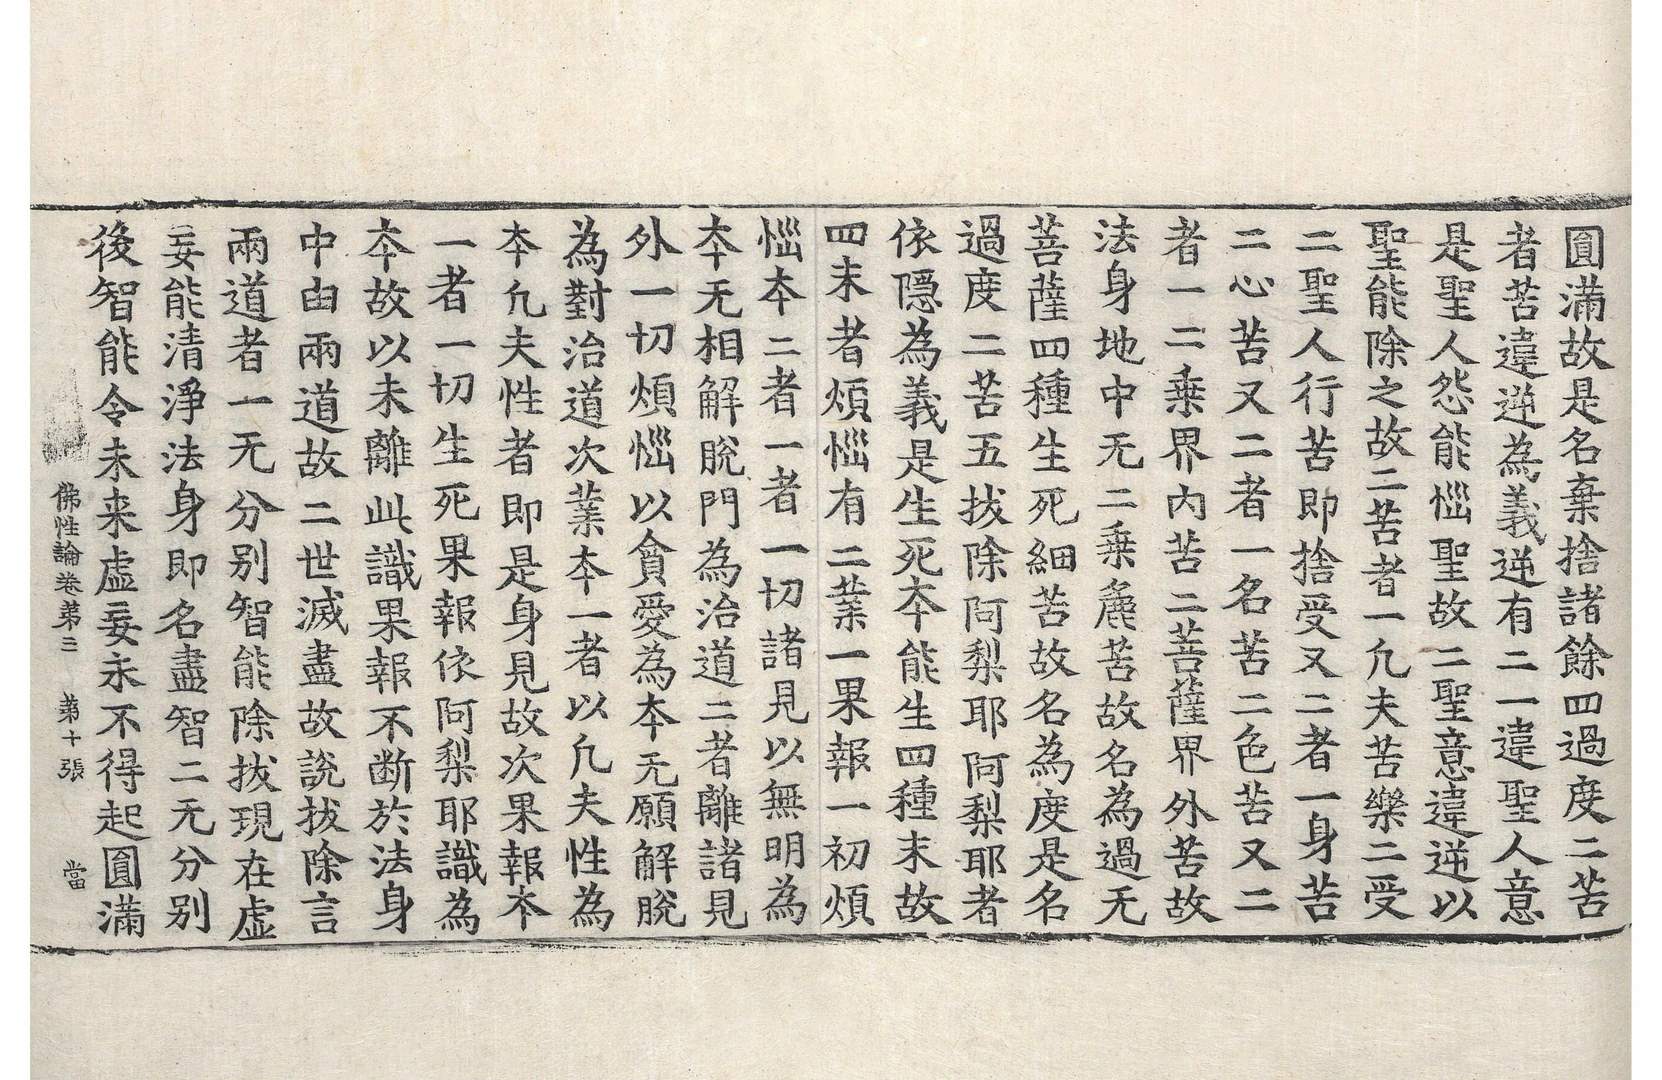 圓滿故是名棄捨諸餘四過度二苦
者苦違逆為義逆有二一違聖人意
是聖人怨能惱聖故二聖意違逆以
聖能除之故二苦者一凢夫苦樂二受
二聖人行苦即捨受又二者一身苦
二心苦又二者一名苦二色苦又二
者一二乗界內苦二菩薩界外苦故
法身地中无二乗麁苦故名為過无
菩薩四種生死細苦故名為度是名
過度二苦五拔除阿梨耶阿梨耶者
依隱為義是生死夲能生四種末故
四末者煩惱有二業一果報一初煩
惱夲二者一者一切諸見以無明為
夲无相解脫門為治道二者離諸見
外一切煩惱以貪愛為夲无願解脫
為對治道次業夲一者以凢夫性為
夲凢夫性者即是身見故次果報夲
一者一切生死果報依阿梨耶識為
夲故以未離此識果報不斷於法身
中由兩道故二世滅盡故說拔除言
兩道者一无分別智能除拔現在虛
妄能清淨法身即名盡智二无分別
後智能令未來虛妄永不得起圓滿
佛性論卷苐三 苐十張 當